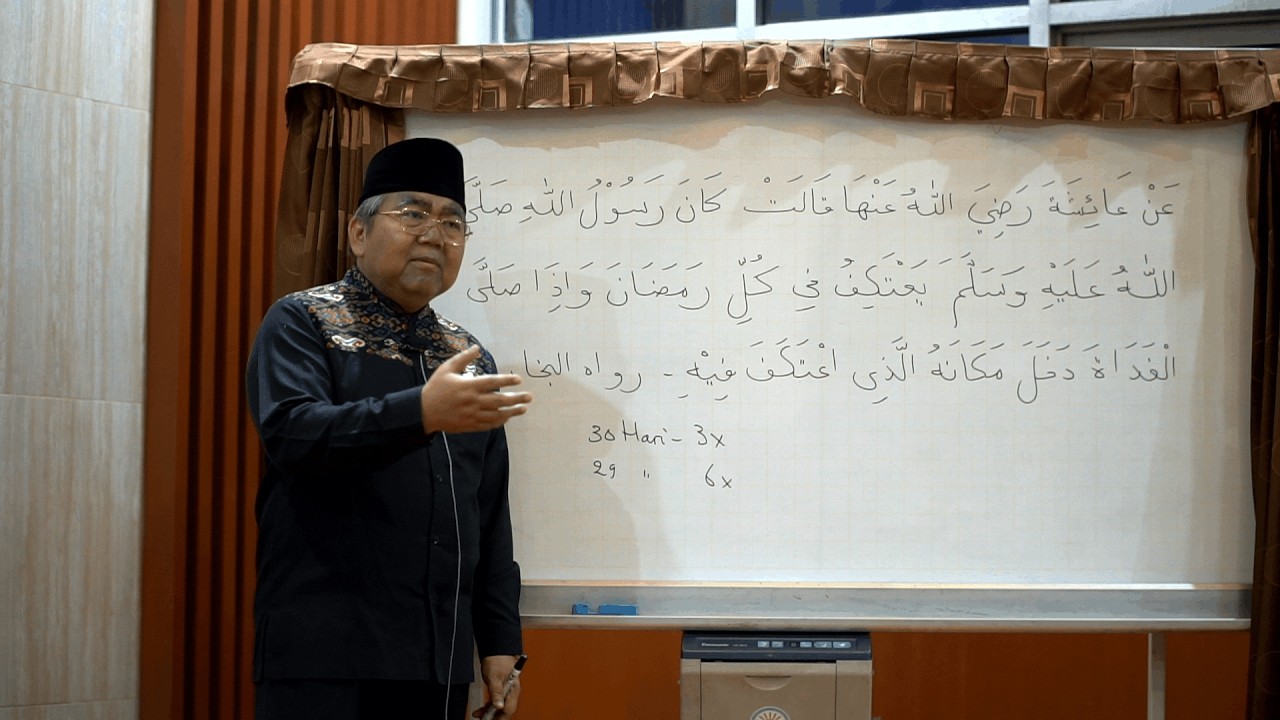 عَنْ عَائِشَةَ رَضِيَ اللّٰهُ عَنْهَا قَالَتْ كَانَ رَسُوْلُ اللّٰهِ صَلَّى
اللّٰهُ عَلَيْهِ وَسَلَّمَ يَعْتَكِفُ فِي كُلِّ رَمَضَانَ وَاِذَا صَلَّى
الْغَدَاةَ دَخَلَ مَكَانَهُ الَّذِي اعْتَكَفَ فِيْهِ - رواه
30 Hari - 3x
29 " 6x
Panasonic